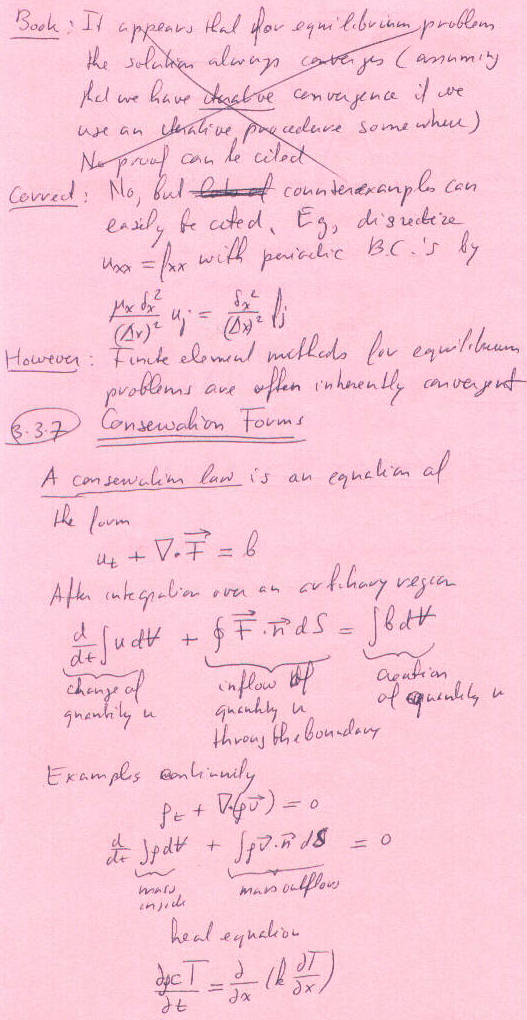 Book: It appears that for equilibrium problem
the solution always converges (assuming
that we have iterative convergence if we
use an iterative procedure somewhere)
No proof can be cited
Correct: No, but lots of counterexamples can
easily be cited. Eg, discretize
uxx = fxx with periodic B.C.'s by
μx δx² / (Δx)² uj = δx² / (Δx)² fj
However: Finite element methods for equilibrium
problems are often inherently convergent
3.3.7 Conservation Forms
A conservation law is an equation of
the form
ut + ∇·F⃗ = b
After integration over an arbitrary region
d/dt ∫ u dV + ∮ F⃗·n⃗ dS = ∫ b dV
change of inflow of creation
quantity u quantity u of quantity u
through the boundary
Examples continuity
ρt + ∇·(ρv⃗) = 0
d/dt ∫ρdV + ∫ρv⃗·n⃗ dS = 0
mass mass outflow
inside
heat equation
∂ρcT/∂t = ∂/∂x (k ∂T/∂x)